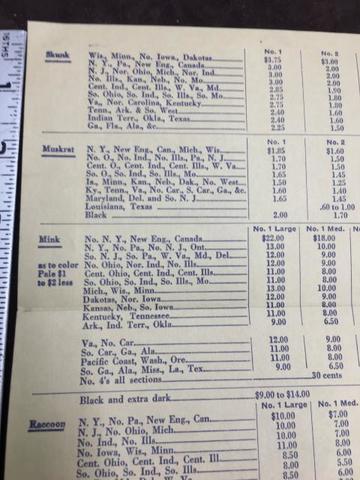 No. 1 No. 2
Skunk Wis., Minn., No. Iowa, Dakotas $3.75 $3.00
N. Y., Pa., New Eng., Canada 3.00 2.00
N. J., Nor. Ohio, Mich., Nor. Ind. 3.00 2.00
No. Ills., Kan., Neb., No. Mo. 3.00 2.00
Cent. Ind., Cent. Ills., W. Va., Md. 2.85 1.90
So. Ohio, So. Ind., So. Ills., So. Mo. 2.75 1.80
Va., Nor. Carolina, Kentucky 2.75 1.80
Tenn., Ark. & So. West 2.40 1.60
Indian Terr., Okla., Texas 2.40 1.60
Ga., Fla., Ala., &c. 2.25 1.50
No. 1 No. 2
Muskrat N. Y., New Eng., Can., Mich., Wis. $1.85 $1.60
No. O., No. Ind., No. Ills., Pa., N. J. 1.70 1.50
Cent. O., Cent. Ind., Cent. Ills., W. Va. 1.70 1.50
So. O., So. Ind., So. Ills., Mo. 1.65 1.45
Ia., Minn., Kan., Neb., Dak., No. West 1.50 1.25
Ky., Tenn., Va., No. Car., S. Car., Ga., &c. 1.60 1.40
Maryland, Del. and So. N. J. 1.65 1.45
Louisiana, Texas .60 to 1.00
Black 2.00 1.70
No. 1 Large No. 1 Med.
Mink No. N. Y., New Eng., Canada $22.00 $18.00
N. Y., No. Pa., No. N. J., Ont. 13.00 10.00
So. N. J., So. Pa., W. Va., Md., Del. 12.00 9.00
as to color No. Ohio, Nor. Ind., No. Ills. 12.00 9.00
Pale $1 Cent. Ohio, Cent. Ind., Cent. Ills. 11.00 8.00
to $2 less So. Ohio, So. Ind., So. Ills., Mo. 11.00 8.00
Mich., Wis., Minn. 13.00 10.00
Dakotas, Nor. Iowa 12.00 9.00
Kansas, Neb., So. Iowa 11.00 8.00
Kentucky, Tennessee 11.00 8.00
Ark., Ind. Terr., Okla. 9.00 6.50
Va., No. Car. 12.00 9.00
So. Car., Ga., Ala. 11.00 8.00
Pacific Coast, Wash., Ore. 11.00 8.00
So. Ga., Ala., Miss., La., Tex. 9.00 6.50
No. 4's all sections 30 cents
Black and extra dark $9.00 to $14.00
No. 1 Large No. 1 Med.
Raccoon N. Y., No. Pa., New Eng., Can. $10.00 $7.00
N. J., No. Ohio, Mich. 10.00 7.00
No. Ind., No. Ills. 10.00 7.00
No. Iowa, Wis., Minn. 11.00 8.00
Cent. Ohio, Cent. Ind., Cent. Ill. 8.50 6.00
So. Ohio, So. Ind., So. Ills. 8.00 5.50